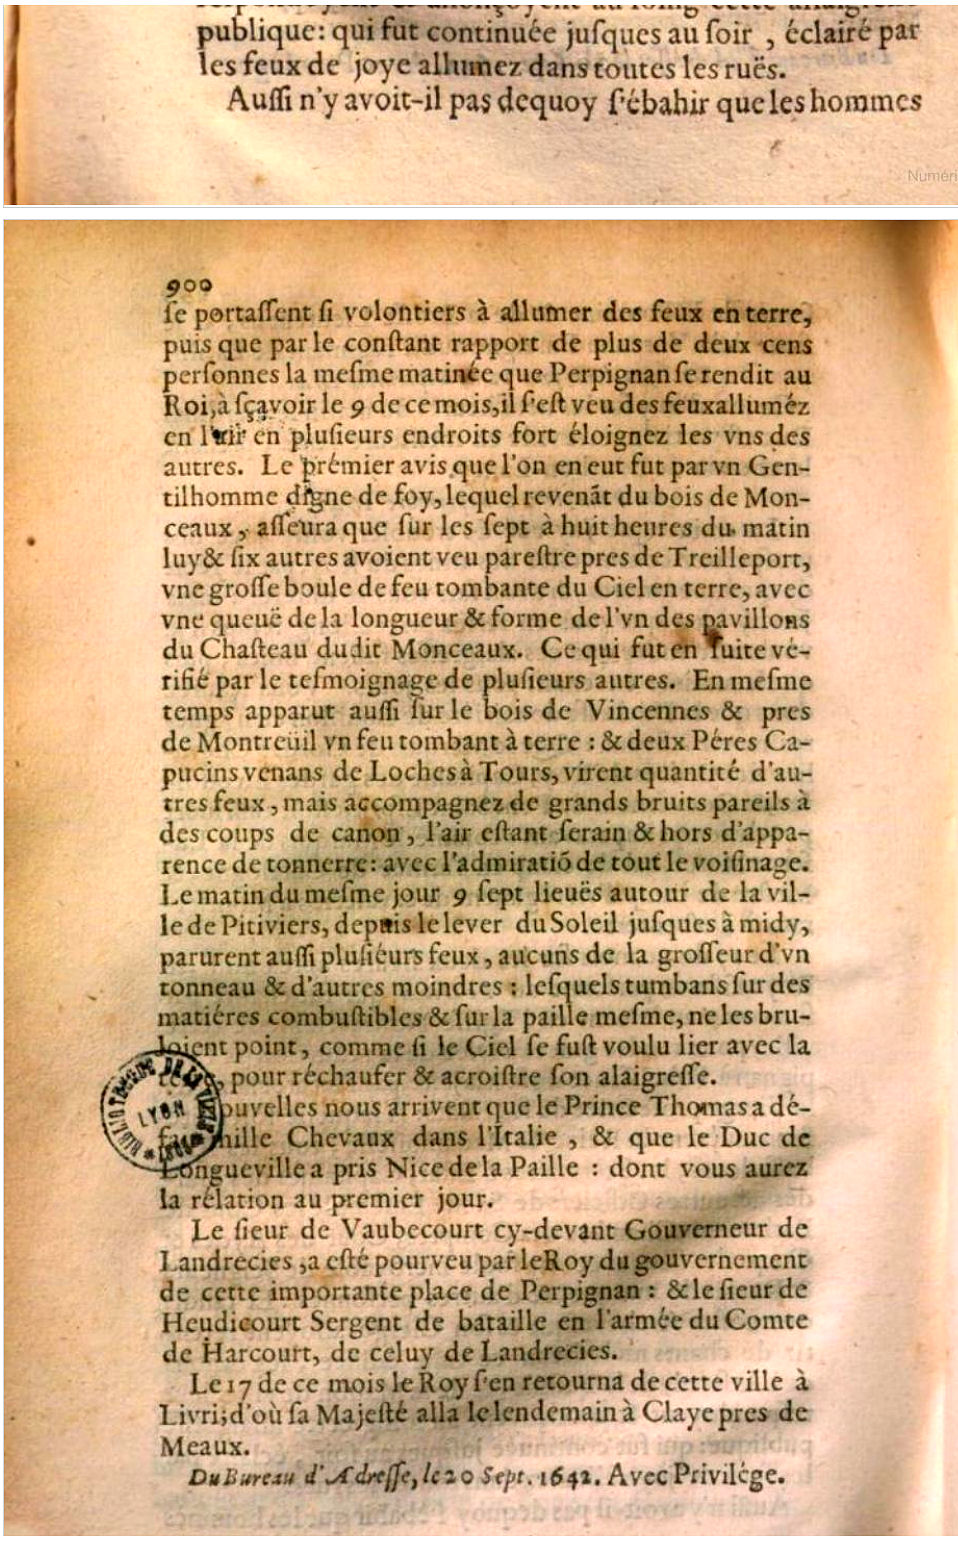 publique: qui fut continuée juſques au ſoir , éclairé par
les feux de joye allumez dans toutes les ruës.
Auſſi n'y avoit-il pas dequoy ſ'ébahir que les hommes
Numéri
900
ſe portaſſent ſi volontiers à allumer des feux en terre,
puis que par le conſtant rapport de plus de deux cens
perſonnes la meſme matinée que Perpignan ſe rendit au
Roi, à ſçavoir le 9 de ce mois, il ſ'eſt veu des feux alluméz
en l'air en pluſieurs endroits fort éloignez les vns des
autres. Le prémier avis que l'on en eut fut par vn Gen-
tilhomme digne de foy, lequel revenãt du bois de Mon-
ceaux, aſſeura que ſur les ſept à huit heures du matin
luy & ſix autres avoient veu pareſtre pres de Treilleport,
vne groſſe boule de feu tombante du Ciel en terre, avec
vne queuë de la longueur & forme de l'vn des pavillons
du Chaſteau dudit Monceaux. Ce qui fut en ſuite vé-
rifié par le teſmoignage de pluſieurs autres. En meſme
temps apparut auſſi ſur le bois de Vincennes & pres
de Montreüil vn feu tombant à terre : & deux Péres Ca-
pucins venans de Loches à Tours, virent quantité d'au-
tres feux, mais accompagnez de grands bruits pareils à
des coups de canon, l'air eſtant ſerain & hors d'appa-
rence de tonnerre: avec l'admiratiõ de tout le voiſinage.
Le matin du meſme jour 9 ſept lieuës autour de la vil-
le de Pitiviers, depuis le lever du Soleil juſques à midy,
parurent auſſi pluſiéurs feux, aucuns de la groſſeur d'vn
tonneau & d'autres moindres : leſquels tumbans ſur des
matiéres combuſtibles & ſur la paille meſme, ne les bru-
loient point, comme ſi le Ciel ſe fuſt voulu lier avec la
pour réchaufer & acroiſtre ſon alaigreſſe.
ouvelles nous arrivent que le Prince Thomas a dé-
mille Chevaux dans l'Italie , & que le Duc de
Longueville a pris Nice de la Paille : dont vous aurez
la rélation au premier jour.
Le ſieur de Vaubecourt cy-devant Gouverneur de
Landrecies, a eſté pourveu par le Roy du gouvernement
de cette importante place de Perpignan : & le ſieur de
Heudicourt Sergent de bataille en l'armée du Comte
de Harcourt, de celuy de Landrecies.
Le 17 de ce mois le Roy ſ'en retourna de cette ville à
Livri; d'où ſa Majeſté alla le lendemain à Claye pres de
Meaux.
Du Bureau d'Adreſſe, le 20 Sept. 1642. Avec Privilége.
LYON